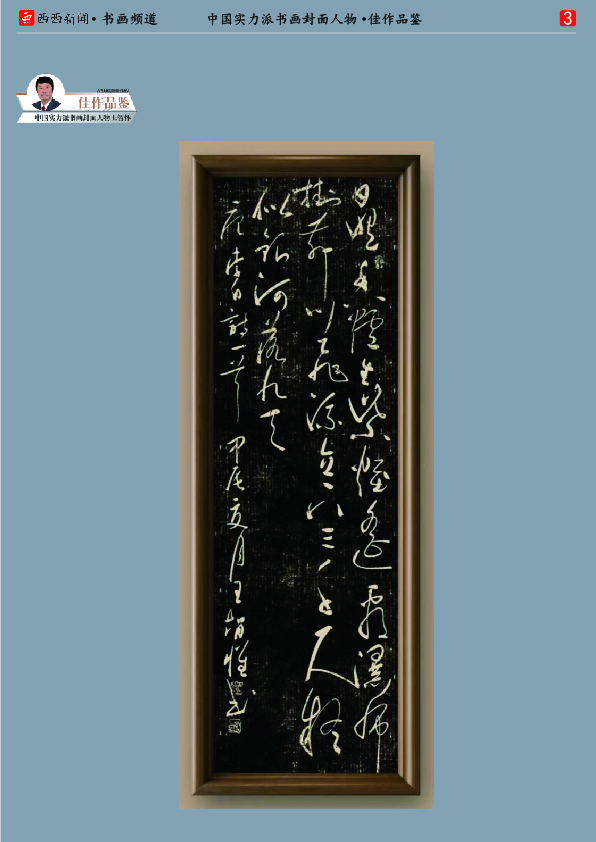 西西新闻·书画频道
中国实力派书画封面人物·佳作品鉴
3
佳作品鉴
中国实力派书画封面人物王智怀
日照香爐生紫煙遙看瀑布
掛前川飛流直下三千尺疑
似銀河落九天
唐李白詩一首 甲辰夏月王智